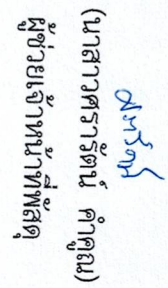 (นางสาวศรารัตน์ คำคูณ)
ผู้ช่วยเจ้าหน้าที่พัสดุ